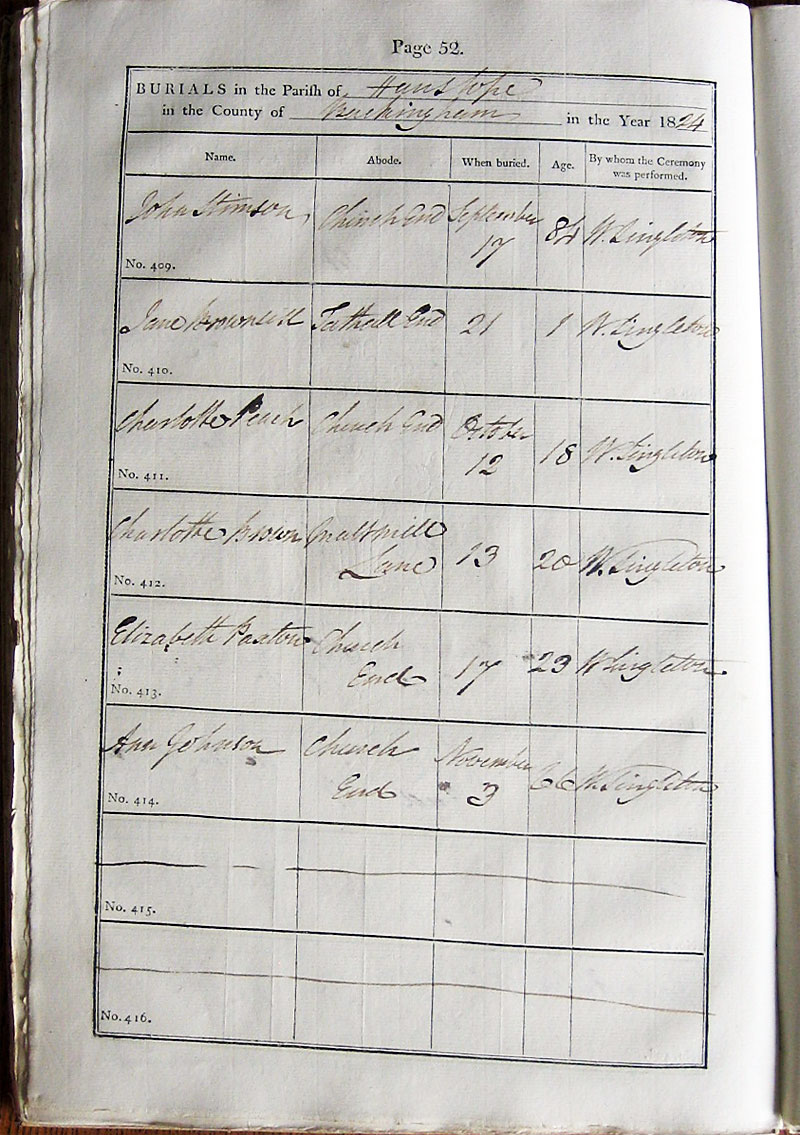 Page 52.
BURIALS in the Parish of Hanslope
in the County of Buckingham in the Year 1824
Name. Abode. When buried. Age. By whom the Ceremony was performed.
John Stimson Church End September 17 84 W. Singleton
No. 409.
Jane Brownsell Tathall End 21 1 W. Singleton
No. 410.
Charlotte Peach Church End October 12 18 W. Singleton
No. 411.
Charlotte Brown Maltmill Lane 13 20 W. Singleton
No. 412.
Elizabeth Paxton Church End 17 23 W Singleton
No. 413.
Ann Johnson Church End November 3 66 W. Singleton
No. 414.
No. 415.
No. 416.